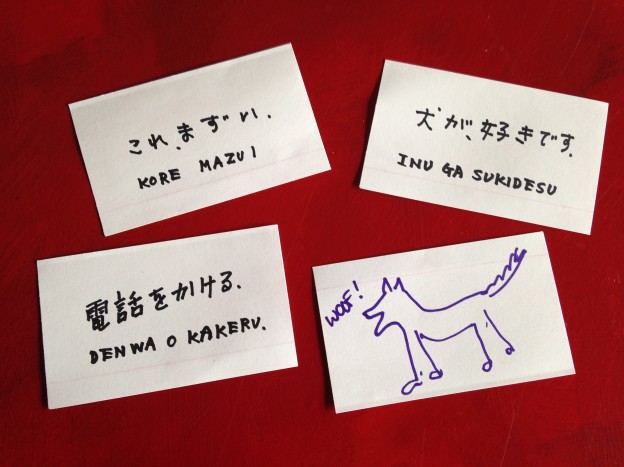 これ、まずい.
KORE MAZUI
犬が、好きです.
INU GA SUKIDESU
電話をかける.
DENWA O KAKERU.
WOOF!